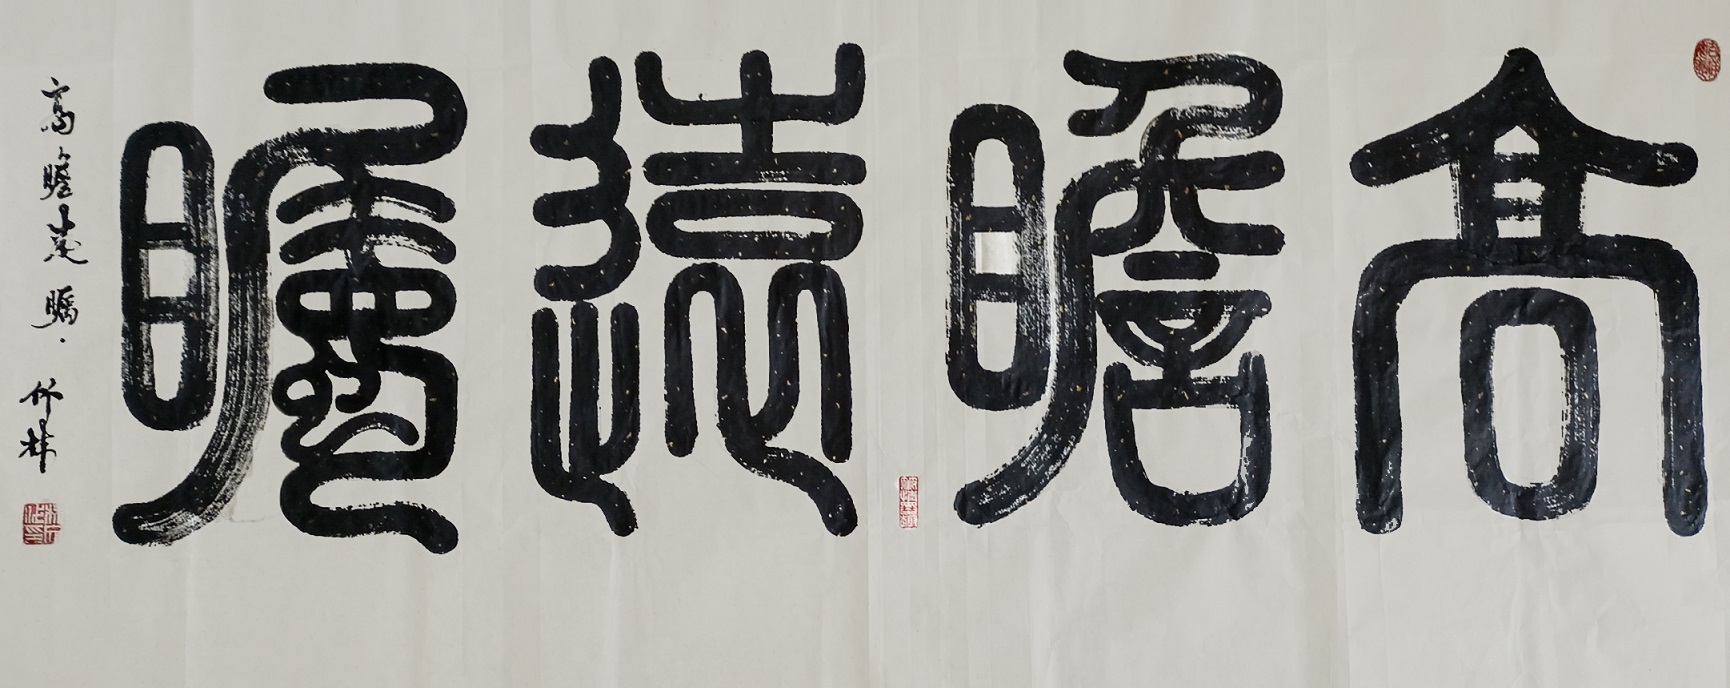 高瞻远瞩
高瞻远瞩